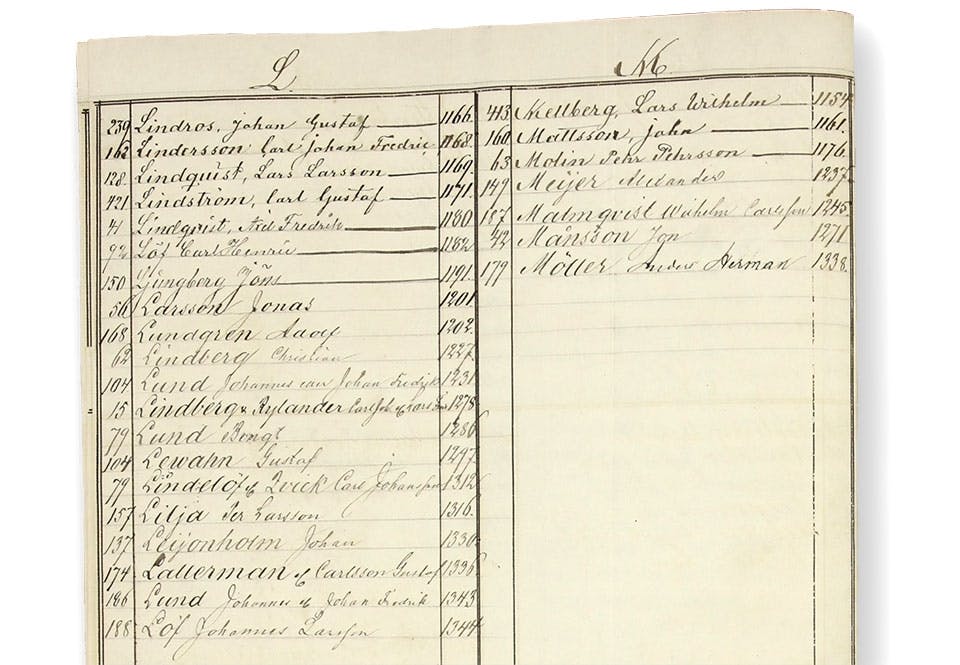 L.
239 Lindros, Johan Gustaf 1166.
162 Lindersson Carl Johan Fredric 1168.
128. Lindquist, Lars Larsson 1169.
421 Lindström, Carl Gustaf 1171.
41 Lindqvist, Axel Fredrik 1180
92 Löf Carl Henric 1182.
150 Ljungberg Jöns 1191.
56 Larsson Jonas 1201
168 Lundgren Adolf 1202.
62 Lindberg Christian 1227.
104 Lund Johannes Johan Fredrik 1231.
15 Lindberg & Rylander 1278
79 Lund Bengt 1286
104 Lewahn Gustaf 1297.
79 Lindelöf & Qvick Carl Johansson 1312
157 Lilja Per Larsson 1316.
137 Leijonholm Johan 1330.
174 Latterman & Carlsson Gustaf 1336
186 Lund Johannes & Johan Fredrik 1343
188 Löf Johannes Larsson 1344
M.
443 Mellberg, Lars Wilhelm 1154
160 Mattsson, John 1161.
63 Molin Pehr Pehrsson 1176.
149 Meijer Alexander 1237.
187 Malmqvist Wilhelm Carlsson 1245
42 Månsson Jon 1271
179 Möller Anders Herman 1338.